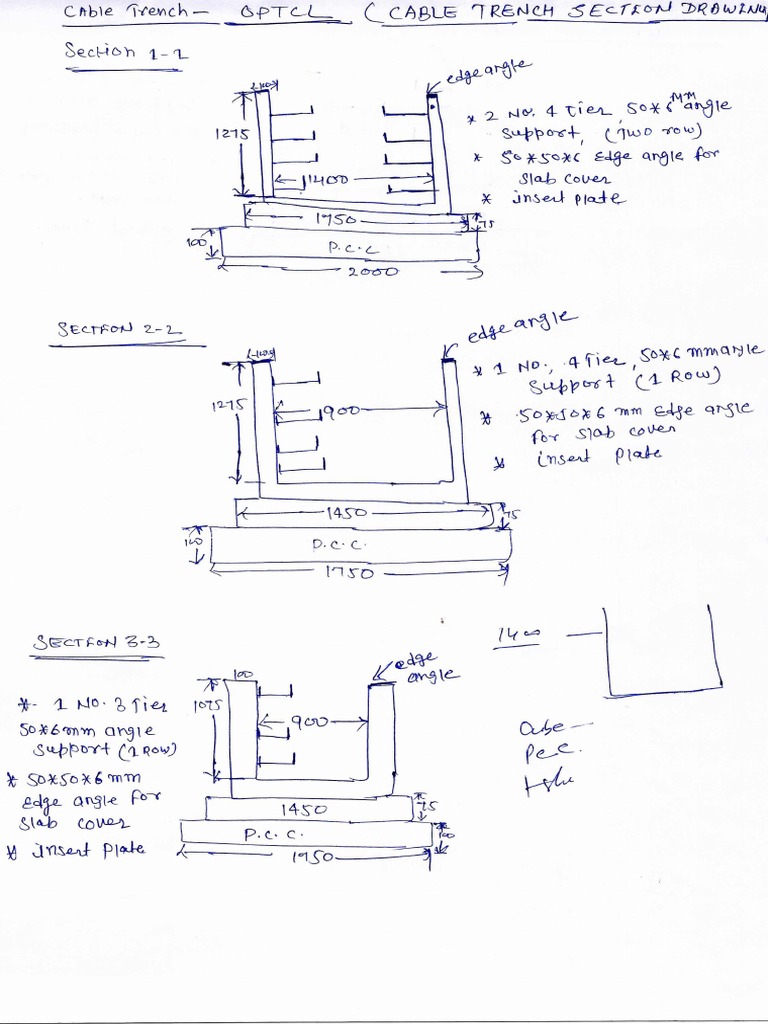 Cable Trench — OPTCL ( CABLE TRENCH SECTION DRAWING
Section 1-1
100
edge angle
1275
1400
* 2 No. 4 Tier, 50*6 MM angle
support, (Two row)
* 50*50*6 Edge angle for
slab cover
* insert plate
1750
75
100
P.C.C
2000
SECTION 2-2
100
edge angle
1275
900
* 1 No., 4 Tier, 50*6 mm angle
support (1 Row)
* 50*50*6 mm Edge angle
for slab cover
* insert plate
1450
75
100
P.C.C.
1750
SECTION 3-3
1400
100
edge
angle
*- 1 No. 3 Tier
50*6mm angle
support (1 Row)
* 50*50*6 mm
edge angle for
slab cover
* insert plate
1075
900
1450
75
P.C.C.
100
1750
P.C.C.